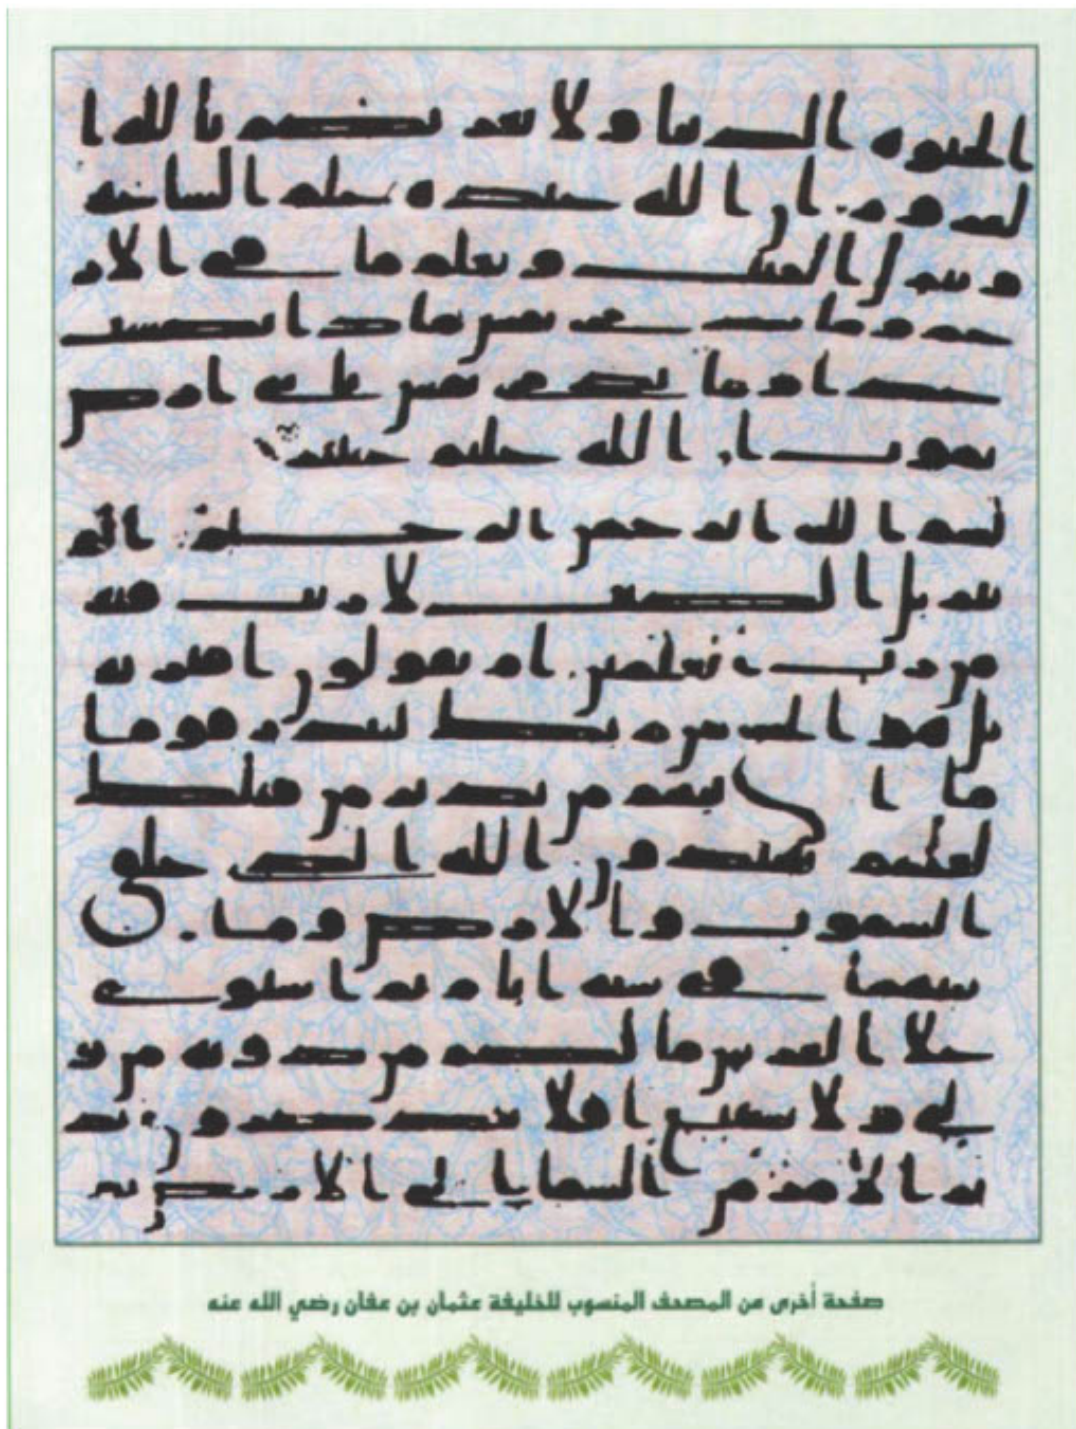 الحيوه الدنيا ولا يغرنكم بالله ا
لغرور ان الله عنده علم الساعه
وينزل الغيث ويعلم ما في الار
حم وما تدري نفس ماذا تكسب
غدا وما تدري نفس باي ارض
تموت ان الله عليم خبير
بسم الله الرحمن الرحيم الم
تنزيل الكتب لا ريب فيه
من رب العلمين ام يقولون افتريه
بل هو الحق من ربك لتنذر قوما
ما ا تيهم من نذير من قبلك
لعلهم يهتدون الله الذي خلق
السموت والارض وما
بينهما في سته ايام ثم استوى
على العرش ما لكم من دونه من و
لي ولا شفيع افلا تتذكرون يد
بر الامر من السما الى الارض ثم
صفحة أخرى من المصحف المنسوب للخليفة عثمان بن عفان رضي الله عنه